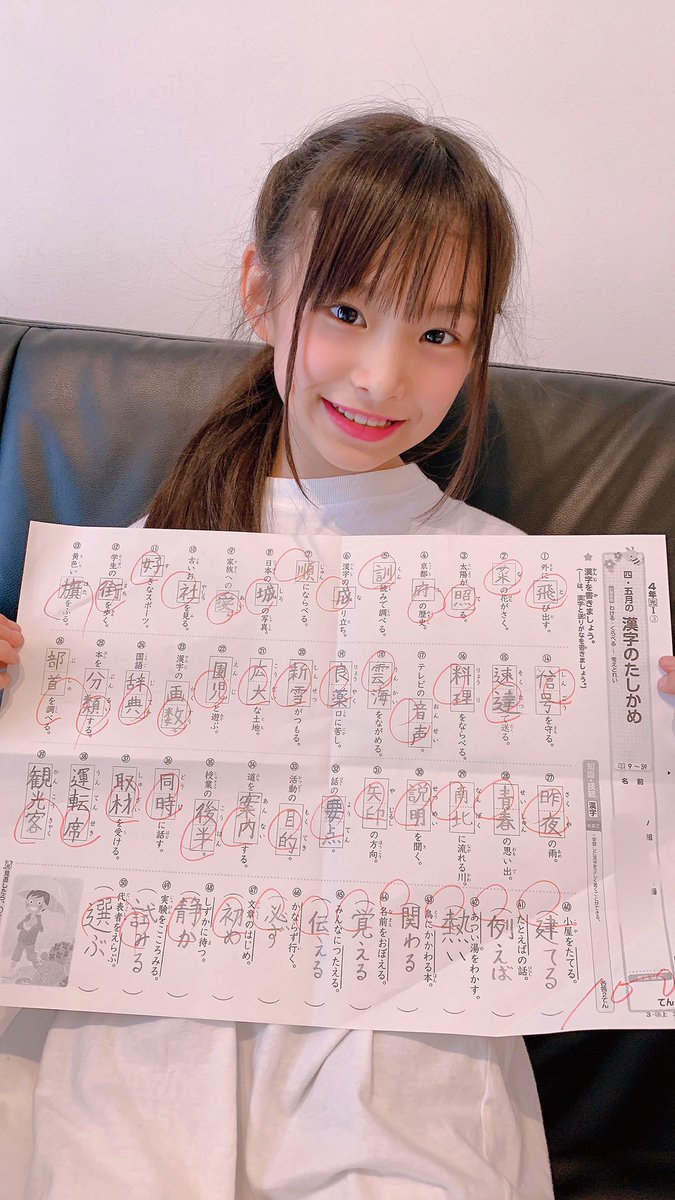 4年
四・五月の 漢字のたしかめ
名前
組
番
てん
★漢字を書きましょう。
①外に飛び出す。
②菜の花がさく。
③太陽が照る。
④京都府の歴史。
⑤訓読みで調べる。
⑥漢字の成り立ち。
⑦順にならべる。
⑧日本の城の写真。
⑨家族への愛。
⑩古いお社を見る。
⑪好きなスポーツ。
⑫学生の街を歩く。
⑬黄色い旗をふる。
⑭信号を守る。
⑮速達で送る。
⑯料理をならべる。
⑰テレビの音声。
⑱雲海をながめる。
⑲良薬口に苦し。
⑳新雪がつもる。
㉑広大な土地。
㉒園児と遊ぶ。
㉓漢字の画数。
㉔国語辞典。
㉕本を分類する。
㉖部首を調べる。
㉗昨夜の雨。
㉘青春の思い出。
㉙南北に流れる川。
㉚説明を聞く。
㉛矢印の方向。
㉜話の要点。
㉝活動の目的。
㉞道を案内する。
㉟授業の後半。
㊱同時に話す。
㊲取材を受ける。
㊳運転席
㊴観光客
㊵小屋をたてる。
建てる
㊶たとえばの話。
例えば
㊷あつい湯をわかす。
熱い
㊸鳥にかかわる本。
関わる
㊹名前をおぼえる。
覚える
㊺みんなにつたえる。
伝える
㊻かならず行く。
必ず
㊼文章のはじめ。
初め
㊽しずかに待つ。
静か
㊾実験をこころみる。
試みる
㊿代表者をえらぶ。
選ぶ
100